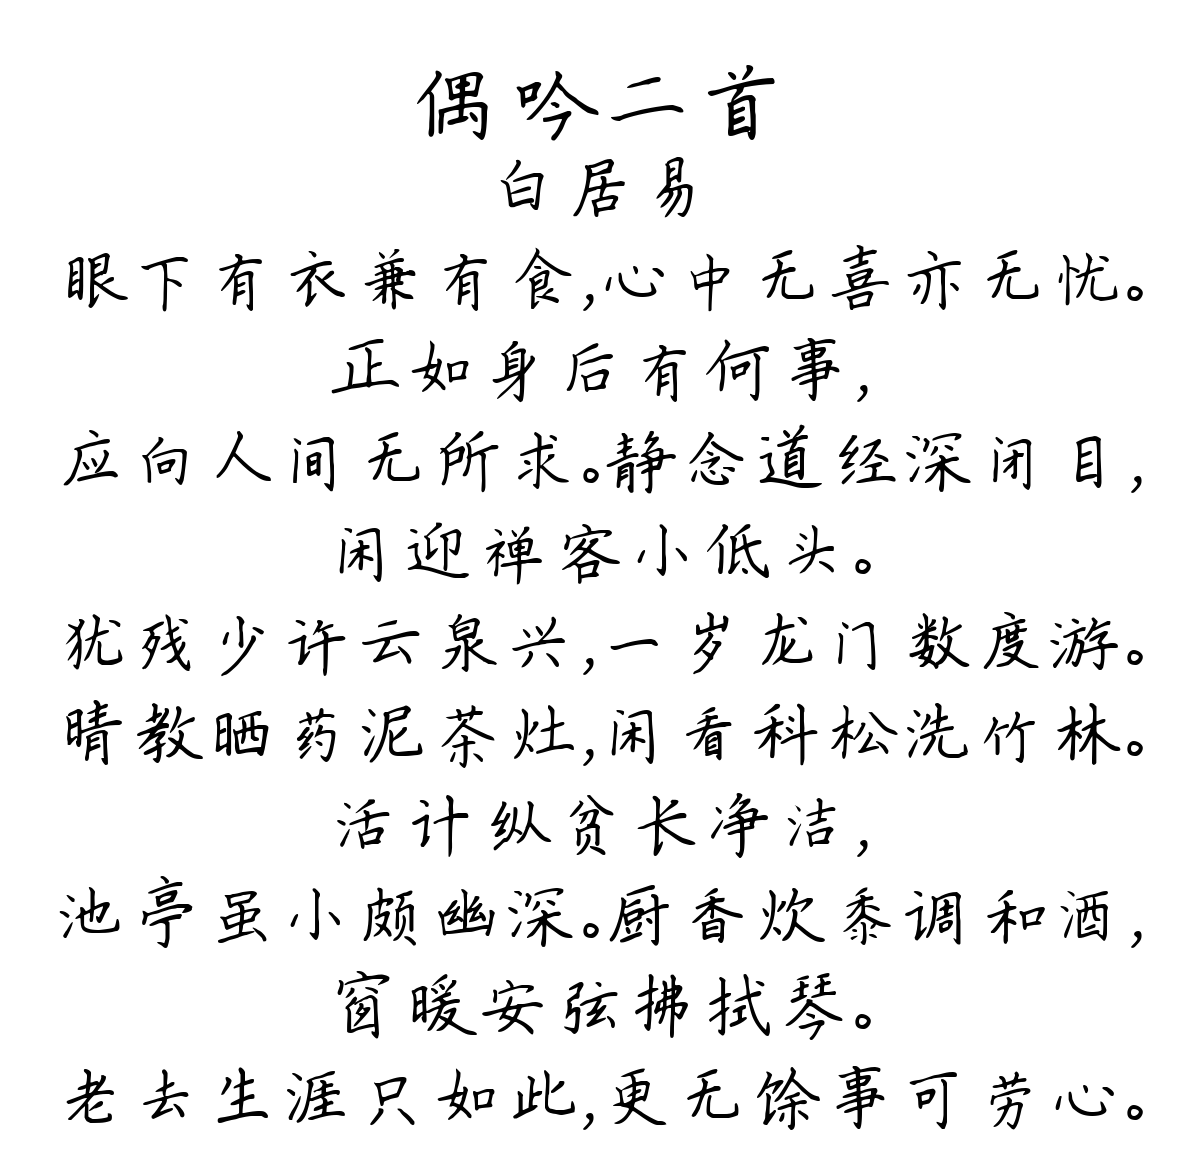 偶吟二首
白居易
眼下有衣兼有食,心中无喜亦无忧。
正如身后有何事,
应向人间无所求。静念道经深闭目,
闲迎禅客小低头。
犹残少许云泉兴,一岁龙门数度游。
晴教晒药泥茶灶,闲看科松洗竹林。
活计纵贫长净洁,
池亭虽小颇幽深。厨香炊黍调和酒,
窗暖安弦拂拭琴。
老去生涯只如此,更无馀事可劳心。